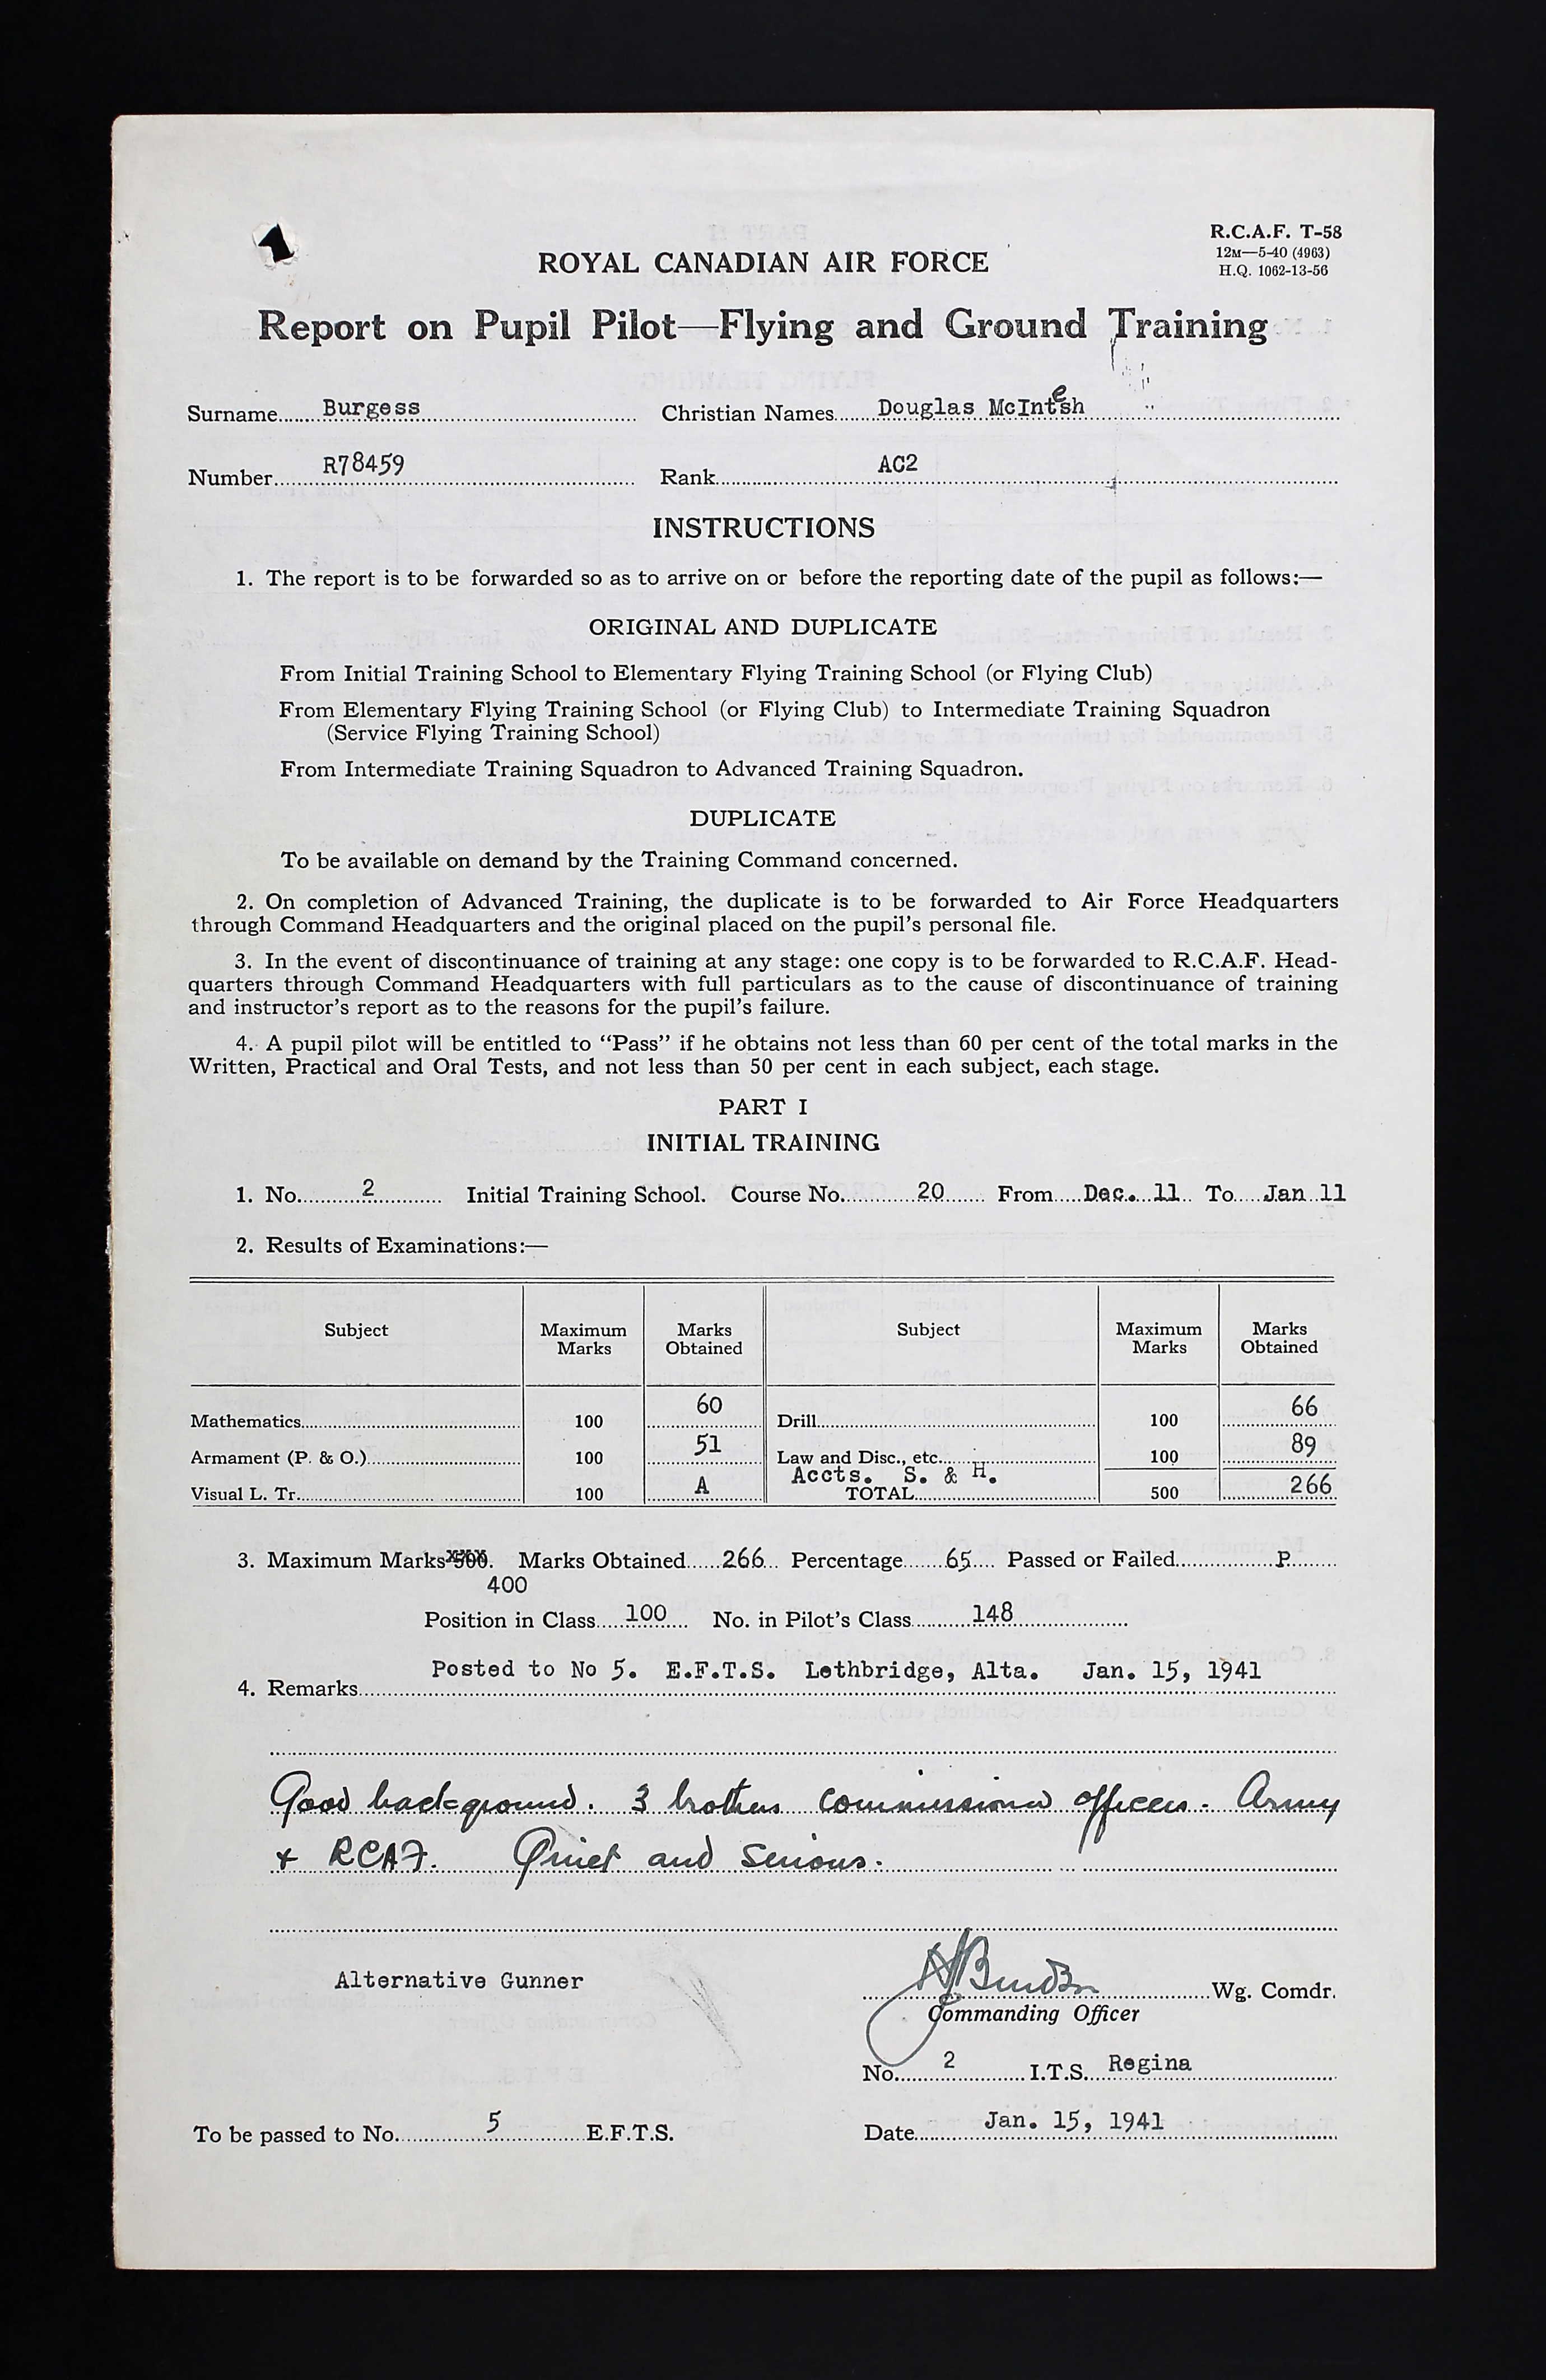 R.C.A.F. T-58
12M—5-40 (4963)
H.Q. 1062-13-56
ROYAL CANADIAN AIR FORCE
Report on Pupil Pilot—Flying and Ground Training
Surname Burgess Christian Names Douglas McIntesh
Number R78459 Rank AC2
INSTRUCTIONS
1. The report is to be forwarded so as to arrive on or before the reporting date of the pupil as follows:—
ORIGINAL AND DUPLICATE
From Initial Training School to Elementary Flying Training School (or Flying Club)
From Elementary Flying Training School (or Flying Club) to Intermediate Training Squadron
(Service Flying Training School)
From Intermediate Training Squadron to Advanced Training Squadron.
DUPLICATE
To be available on demand by the Training Command concerned.
2. On completion of Advanced Training, the duplicate is to be forwarded to Air Force Headquarters
through Command Headquarters and the original placed on the pupil's personal file.
3. In the event of discontinuance of training at any stage: one copy is to be forwarded to R.C.A.F. Head-
quarters through Command Headquarters with full particulars as to the cause of discontinuance of training
and instructor's report as to the reasons for the pupil's failure.
4. A pupil pilot will be entitled to "Pass" if he obtains not less than 60 per cent of the total marks in the
Written, Practical and Oral Tests, and not less than 50 per cent in each subject, each stage.
PART I
INITIAL TRAINING
1. No. 2 Initial Training School. Course No. 20 From Dec. 11 To Jan 11
2. Results of Examinations:—
Subject Maximum Marks Marks Obtained Subject Maximum Marks Marks Obtained
Mathematics 100 60 Drill 100 66
Armament (P. & O.) 100 51 Law and Disc., etc. 100 89
Accts. S. & H.
Visual L. Tr. 100 A TOTAL 500 266
3. Maximum Marks 500. Marks Obtained 266 Percentage 65 Passed or Failed P
400
Position in Class 100 No. in Pilot's Class 148
Posted to No 5. E.F.T.S. Lethbridge, Alta. Jan. 15, 1941
4. Remarks
Good background. 3 brothers commissioned officers. Army
& RCAF. Quiet and serious.
Alternative Gunner
Wg. Comdr.
Commanding Officer
No. 2 I.T.S. Regina
To be passed to No. 5 E.F.T.S.
Date Jan. 15, 1941